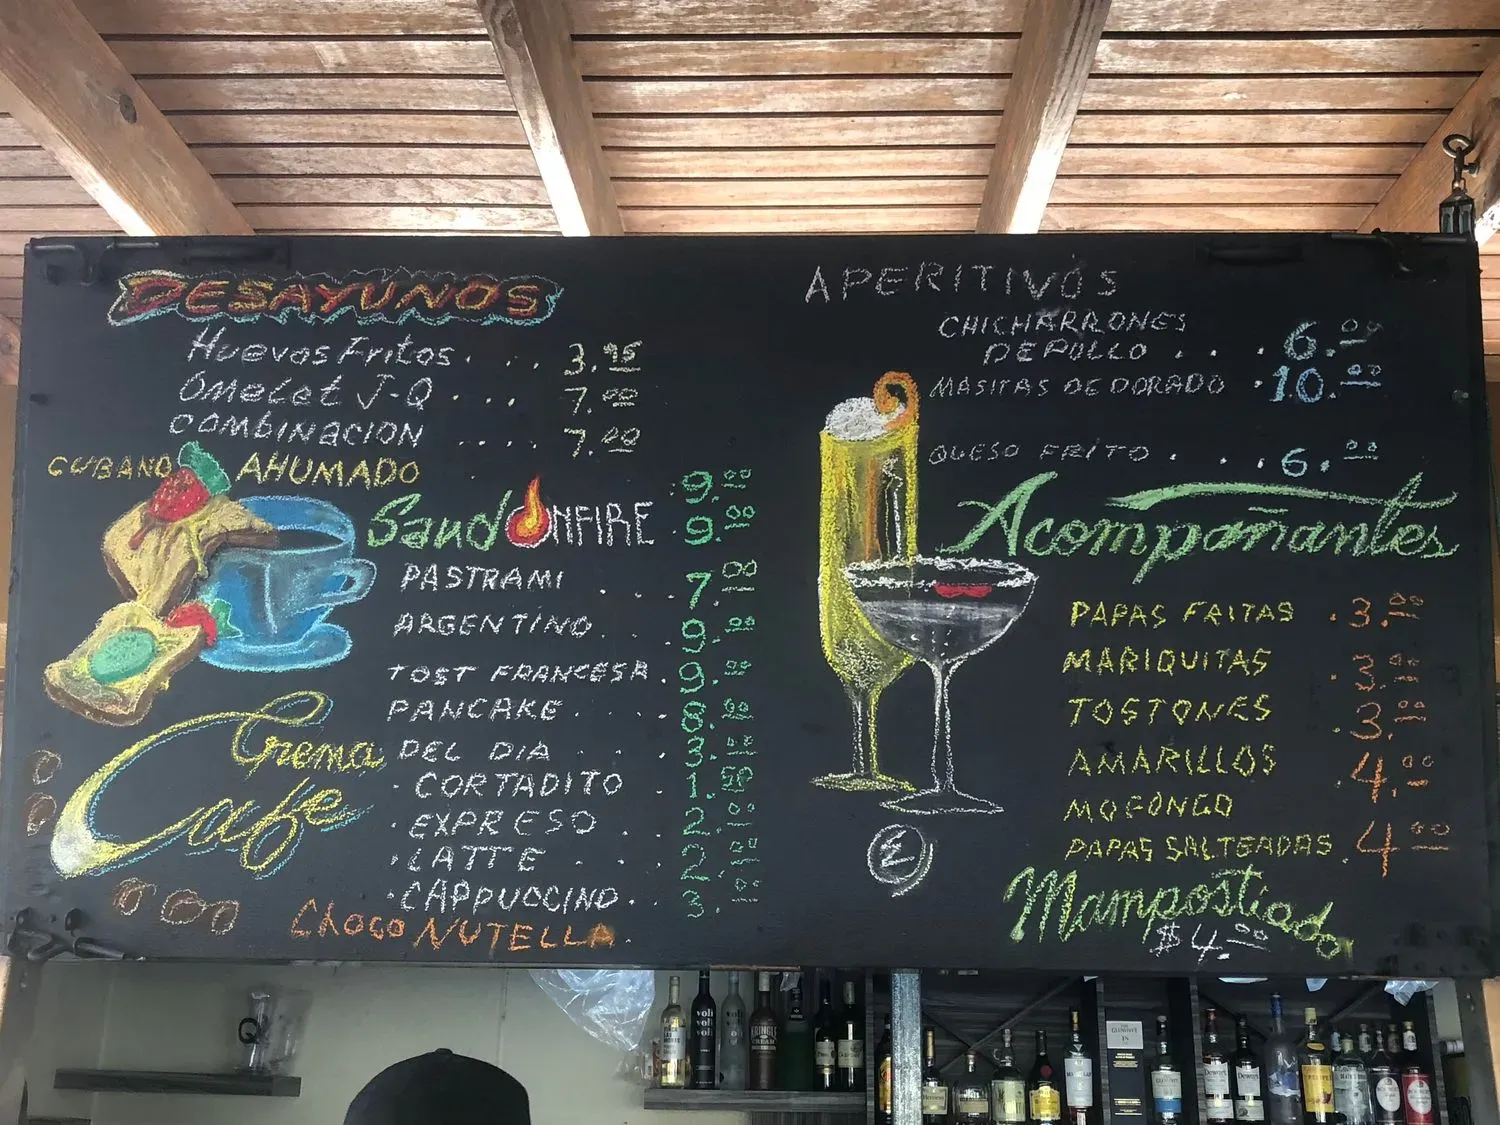 DESAYUNOS
Huevos Fritos . . . . 3.95
Omelet J-Q . . . . 7.00
COMBINACION . . . . 7.00
CUBANO AHUMADO . 9.00
Sand ONFIRE . 9.00
PASTRAMI . . . 7.00
ARGENTINO . . . 9.00
TOST FRANCESA . 9.00
PANCAKE . . . . 8.
Crema Cafe
DEL DIA . . . 3.
· CORTADITO 1.50
· EXPRESO . . 2.
· LATTE . . . 2.
· CAPPUCCINO . . 3.
CHOCO NUTELLA .
APERITIVOS
CHICHARRONES
DE POLLO . . . 6.00
MASITAS DE DORADO . 10.00
QUESO FRITO . . . 6.00
Acompañantes
PAPAS FRITAS . 3.00
MARIQUITAS . 3.00
TOSTONES . 3.00
AMARILLOS . 4.00
MOFONGO
PAPAS SALTEADAS . 4.00
Mampostiado
$4.00